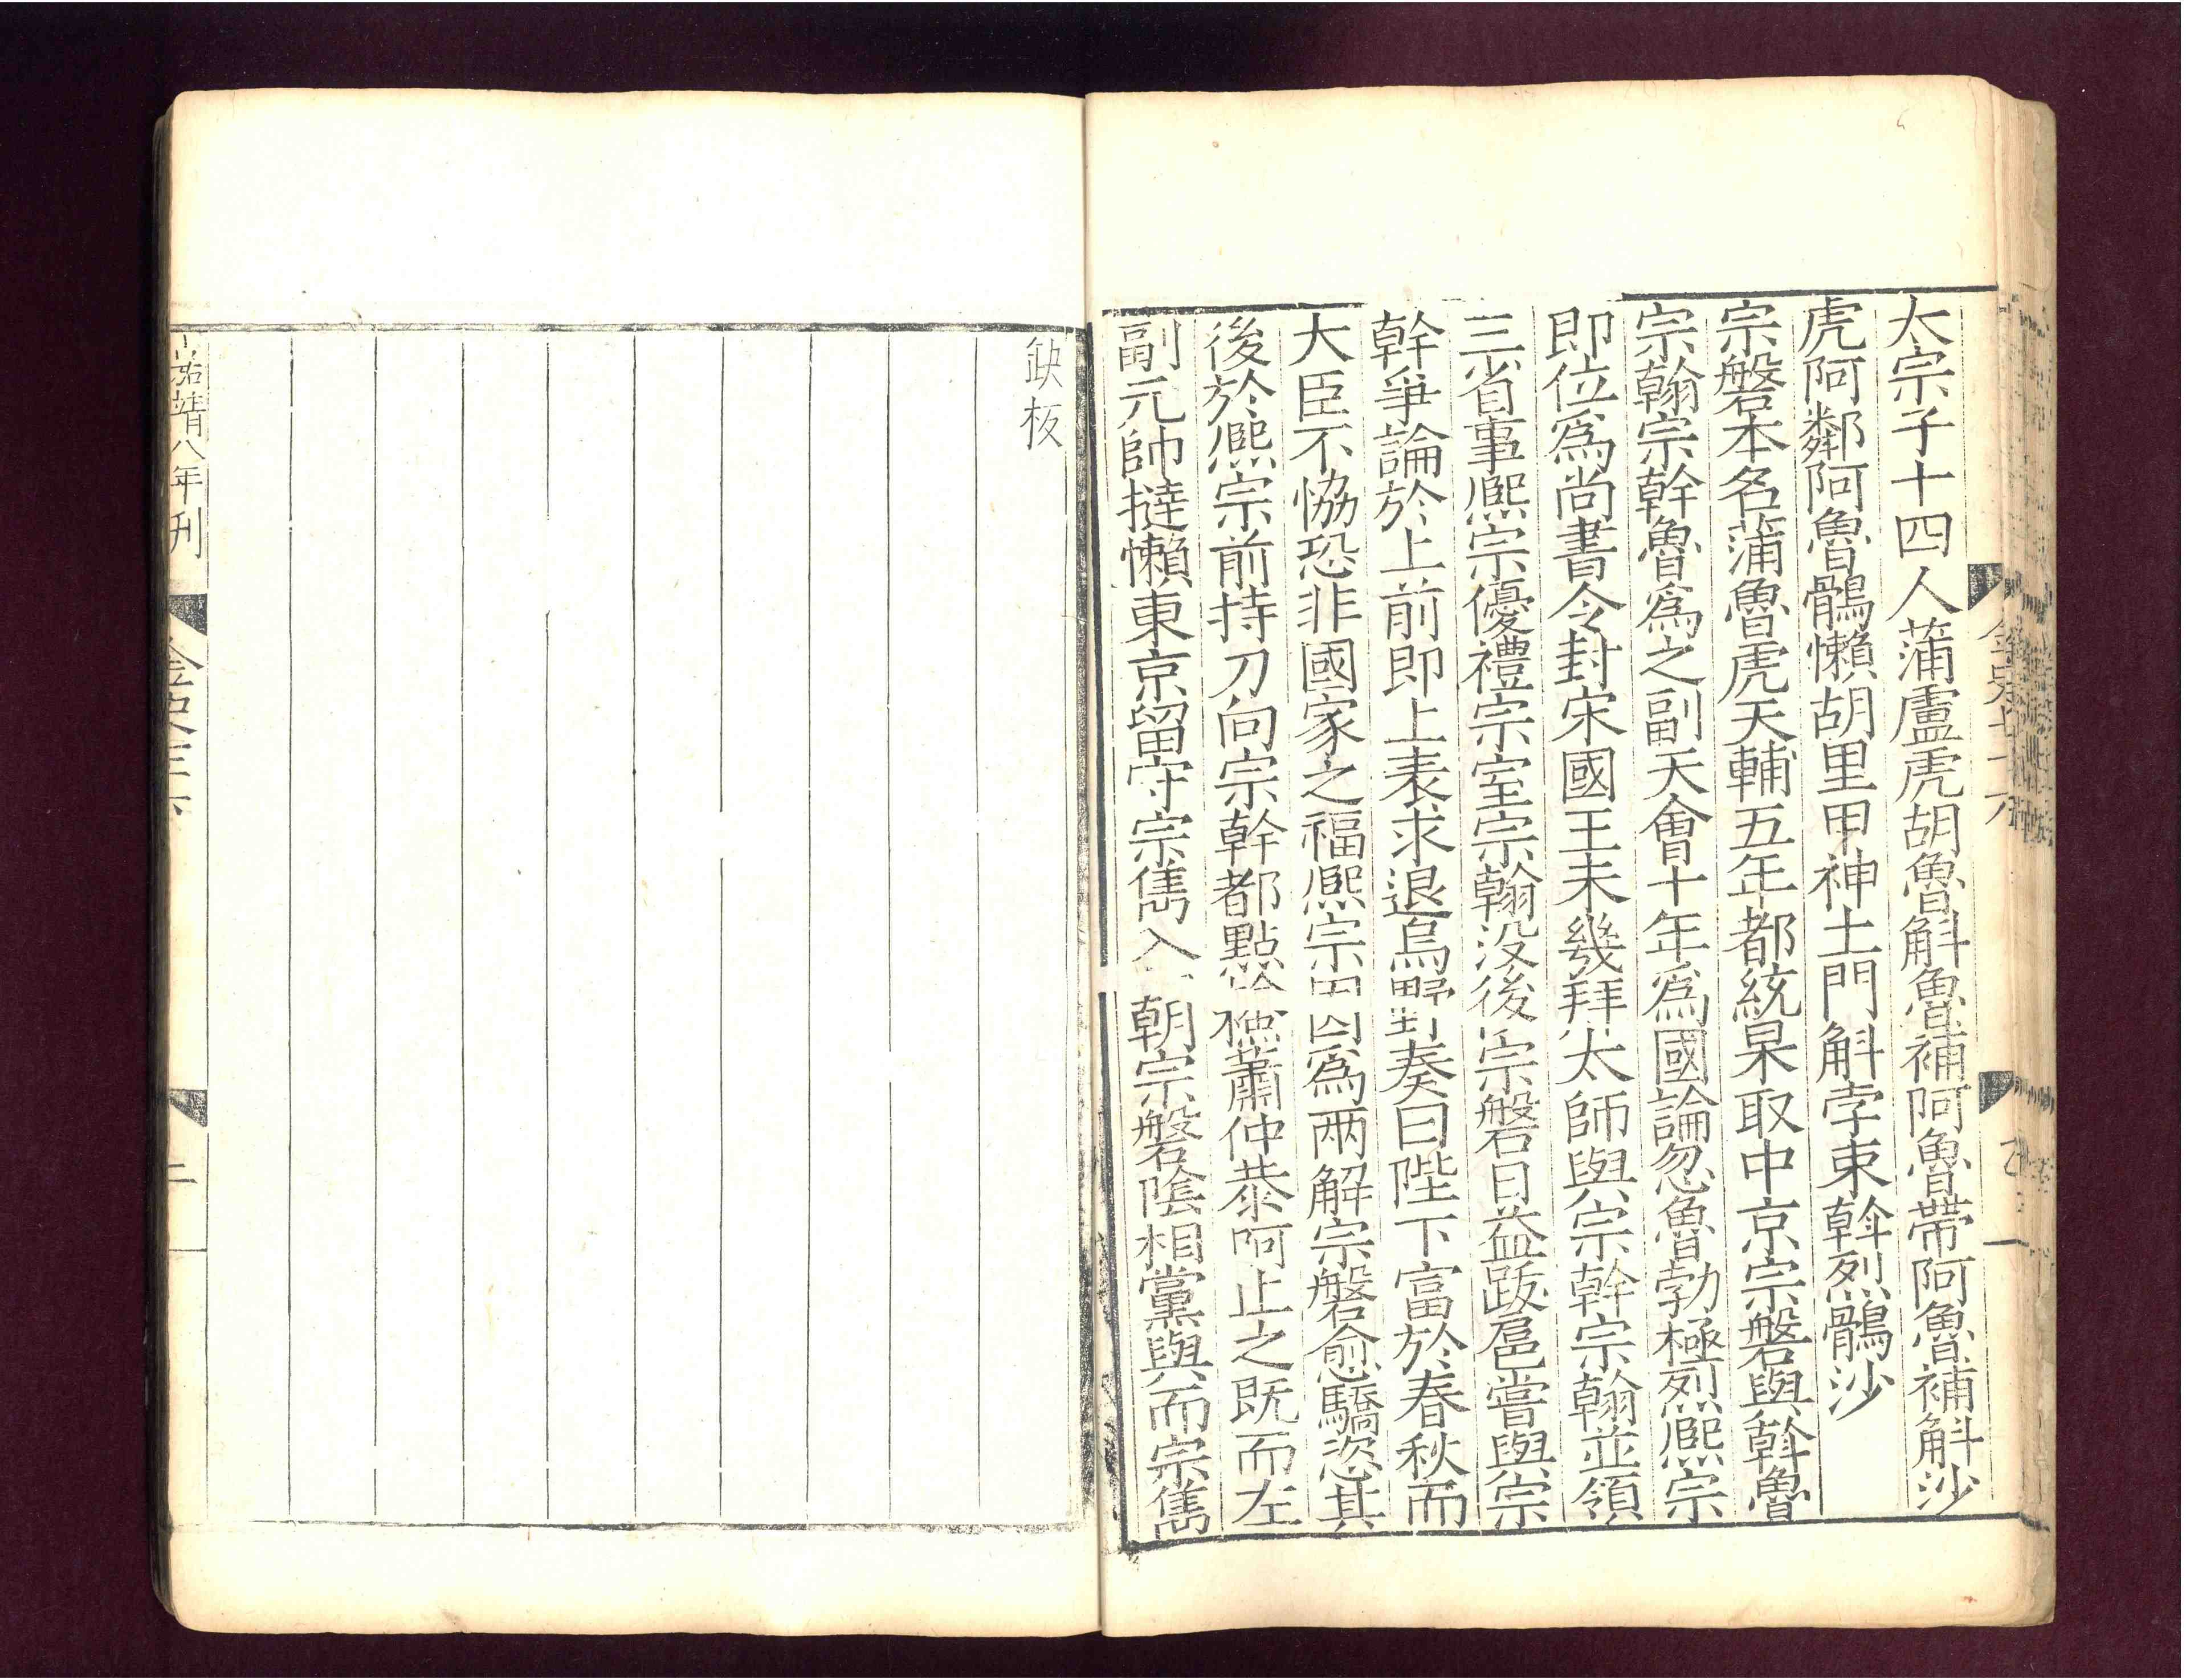 太宗子十四人蒲盧虎胡魯斛魯補阿魯帶阿魯補斛沙
虎阿鄰阿魯鶻懶胡里甲神土門斛孛束斡烈鶻沙
宗磐本名蒲魯虎天輔五年都統杲取中京宗磐與斡魯
宗翰宗幹魯為之副天會十年為國論忽魯勃極烈熙宗
即位為尚書令封宋國王未幾拜太師與宗幹宗翰並領
三省事熙宗優禮宗室宗翰没後宗磐日益跋扈嘗與宗
幹爭論於上前即上表求退烏野對奏曰陛下富於春秋而
大臣不恊恐非國家之福熙宗因為两解宗磐愈驕恣其
後於熙宗前持刀向宗幹都點檢蕭仲恭呵止之既而左
副元帥撻懶東京留守宗雋入朝宗磐陰相黨與而宗雋
缺板
嘉靖八年刊
金史
二